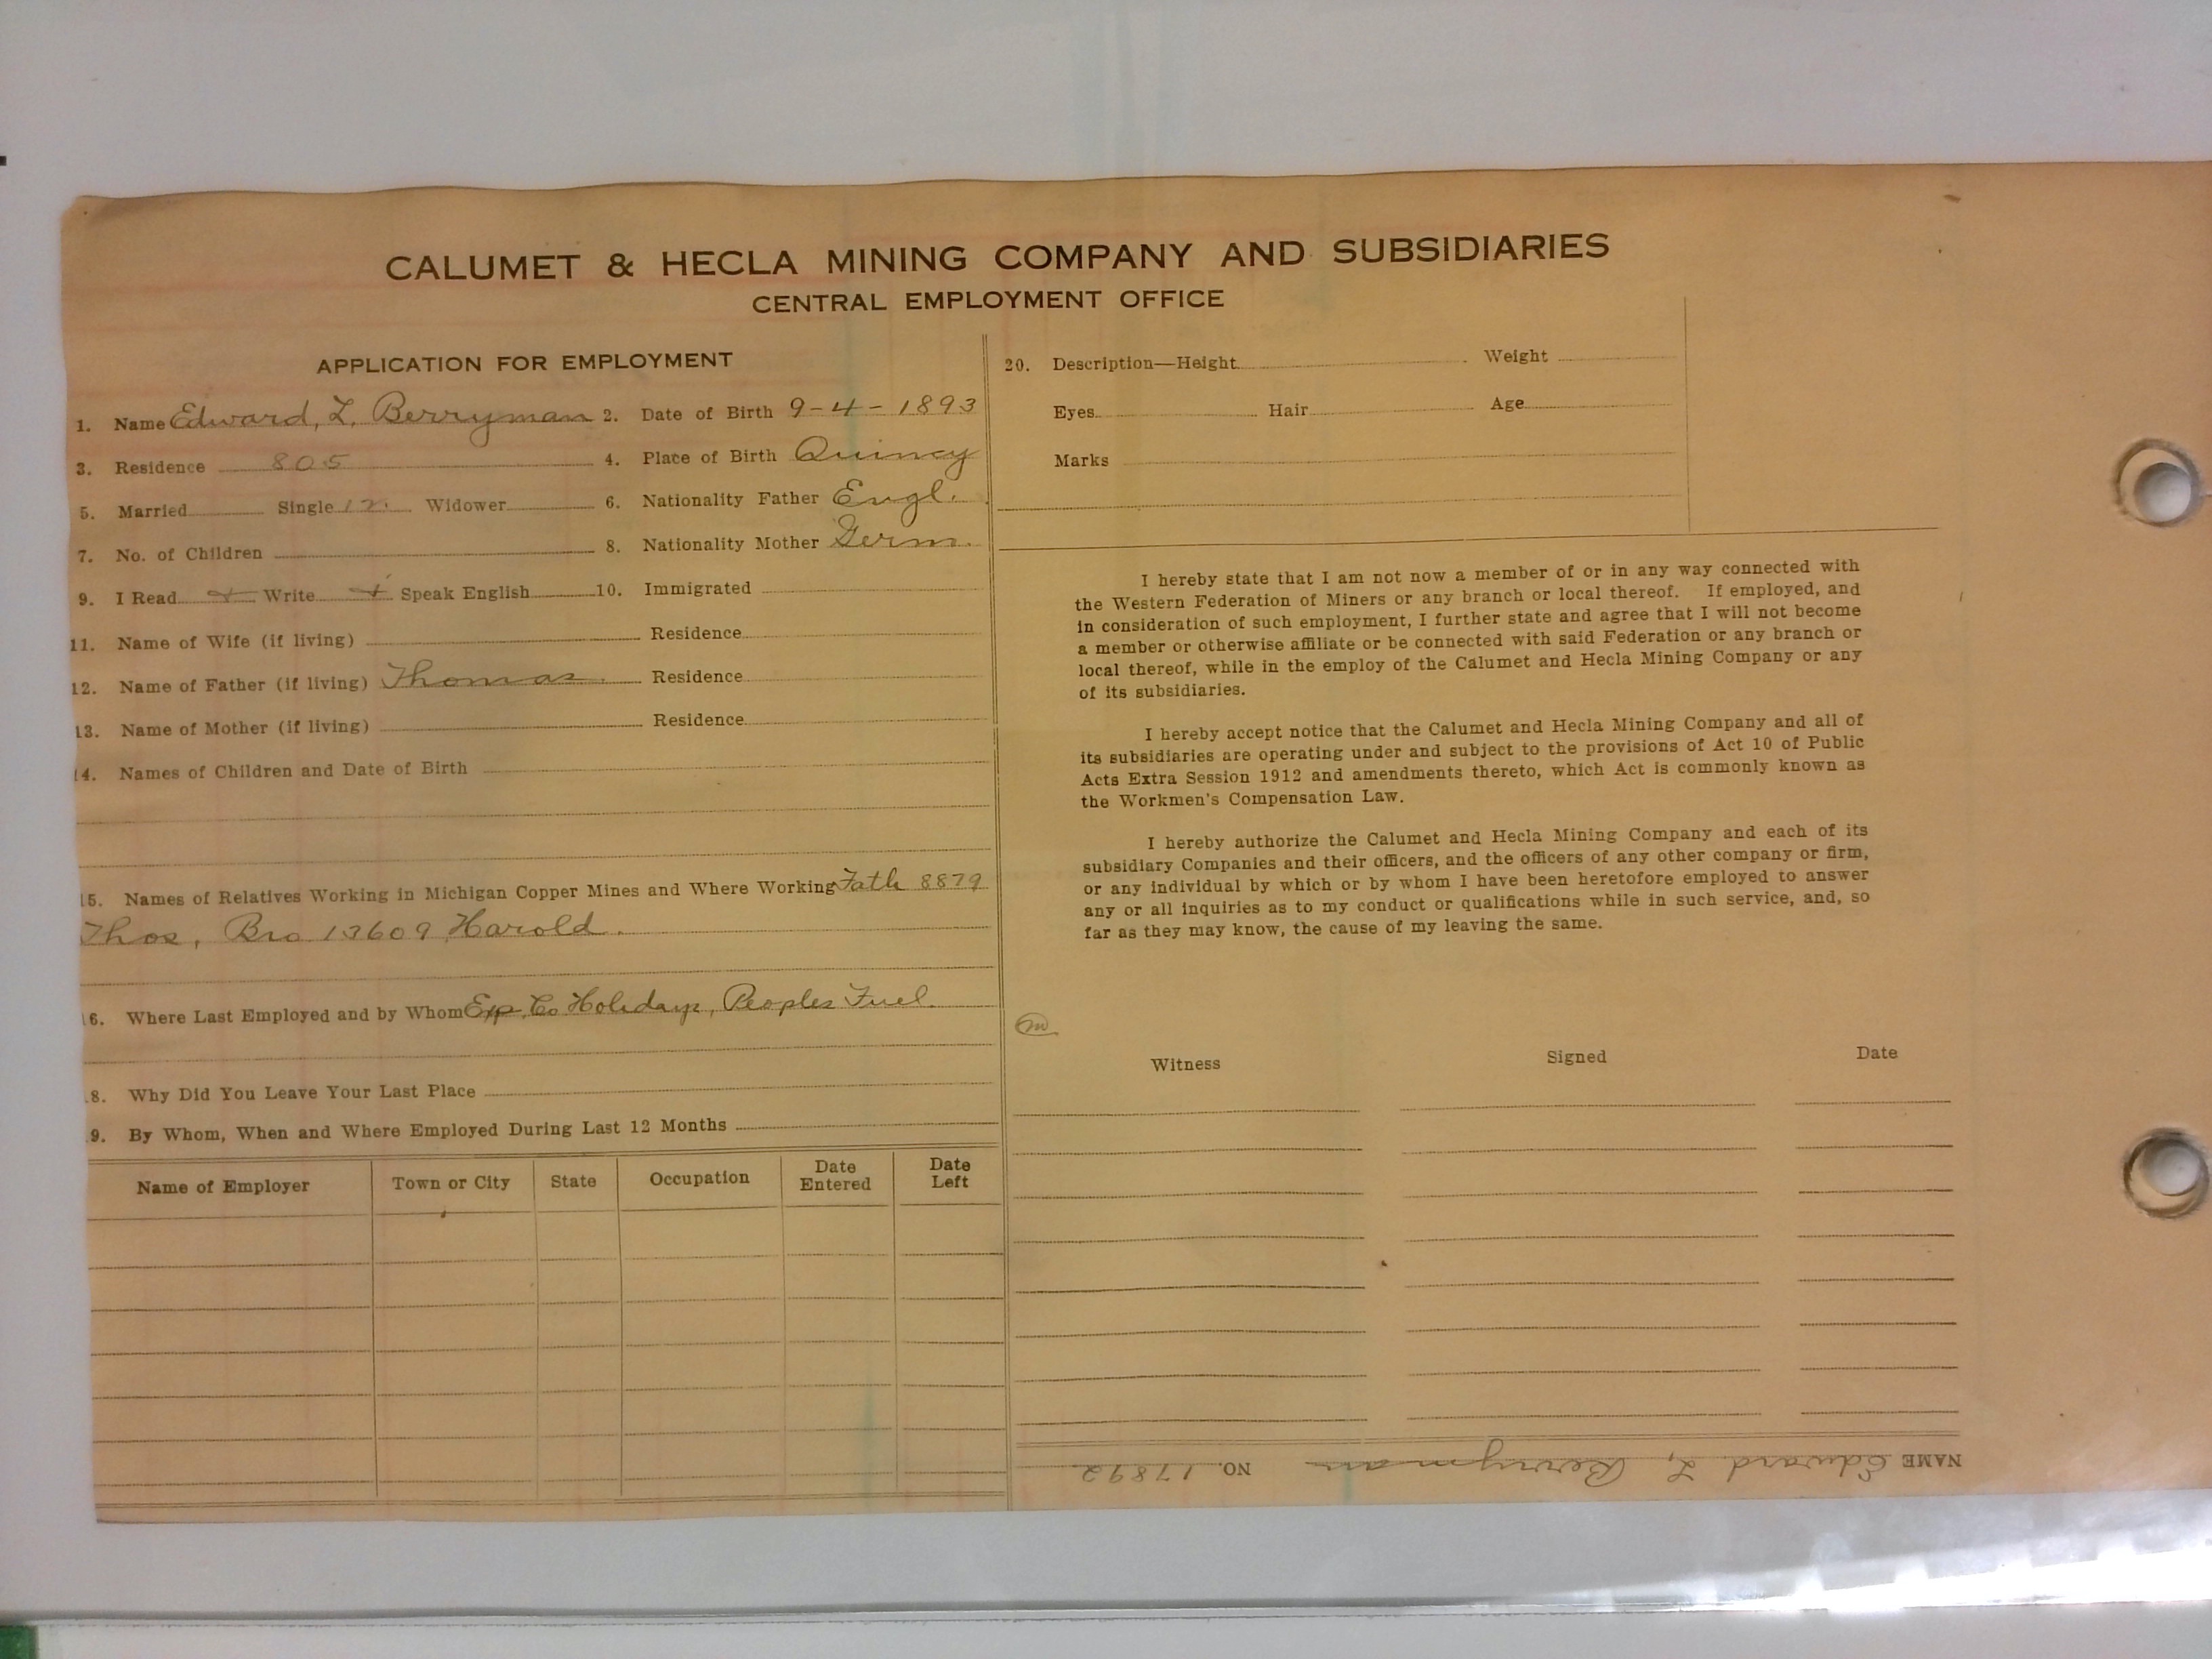 CALUMET & HECLA MINING COMPANY AND SUBSIDIARIES
CENTRAL EMPLOYMENT OFFICE
APPLICATION FOR EMPLOYMENT
1. Name Edward, L. Berryman 2. Date of Birth 9-4-1893
3. Residence 805 4. Place of Birth Quincy
5. Married Single Widower 6. Nationality Father Engl.
7. No. of Children 8. Nationality Mother Germ.
9. I Read + Write + Speak English 10. Immigrated
11. Name of Wife (if living) Residence
12. Name of Father (if living) Thomas. Residence
13. Name of Mother (if living) Residence
14. Names of Children and Date of Birth
15. Names of Relatives Working in Michigan Copper Mines and Where Working Fath 8879
Thos, Bro 13609 Harold.
16. Where Last Employed and by Whom Exp. Co Holidays, Peoples Fuel.
8. Why Did You Leave Your Last Place
9. By Whom, When and Where Employed During Last 12 Months
Name of Employer Town or City State Occupation Date Entered Date Left
20. Description—Height Weight
Eyes Hair Age
Marks
I hereby state that I am not now a member of or in any way connected with
the Western Federation of Miners or any branch or local thereof. If employed, and
in consideration of such employment, I further state and agree that I will not become
a member or otherwise affiliate or be connected with said Federation or any branch or
local thereof, while in the employ of the Calumet and Hecla Mining Company or any
of its subsidiaries.
I hereby accept notice that the Calumet and Hecla Mining Company and all of
its subsidiaries are operating under and subject to the provisions of Act 10 of Public
Acts Extra Session 1912 and amendments thereto, which Act is commonly known as
the Workmen's Compensation Law.
I hereby authorize the Calumet and Hecla Mining Company and each of its
subsidiary Companies and their officers, and the officers of any other company or firm,
or any individual by which or by whom I have been heretofore employed to answer
any or all inquiries as to my conduct or qualifications while in such service, and, so
far as they may know, the cause of my leaving the same.
Witness Signed Date
NAME Edward L, Berryman NO. 17892